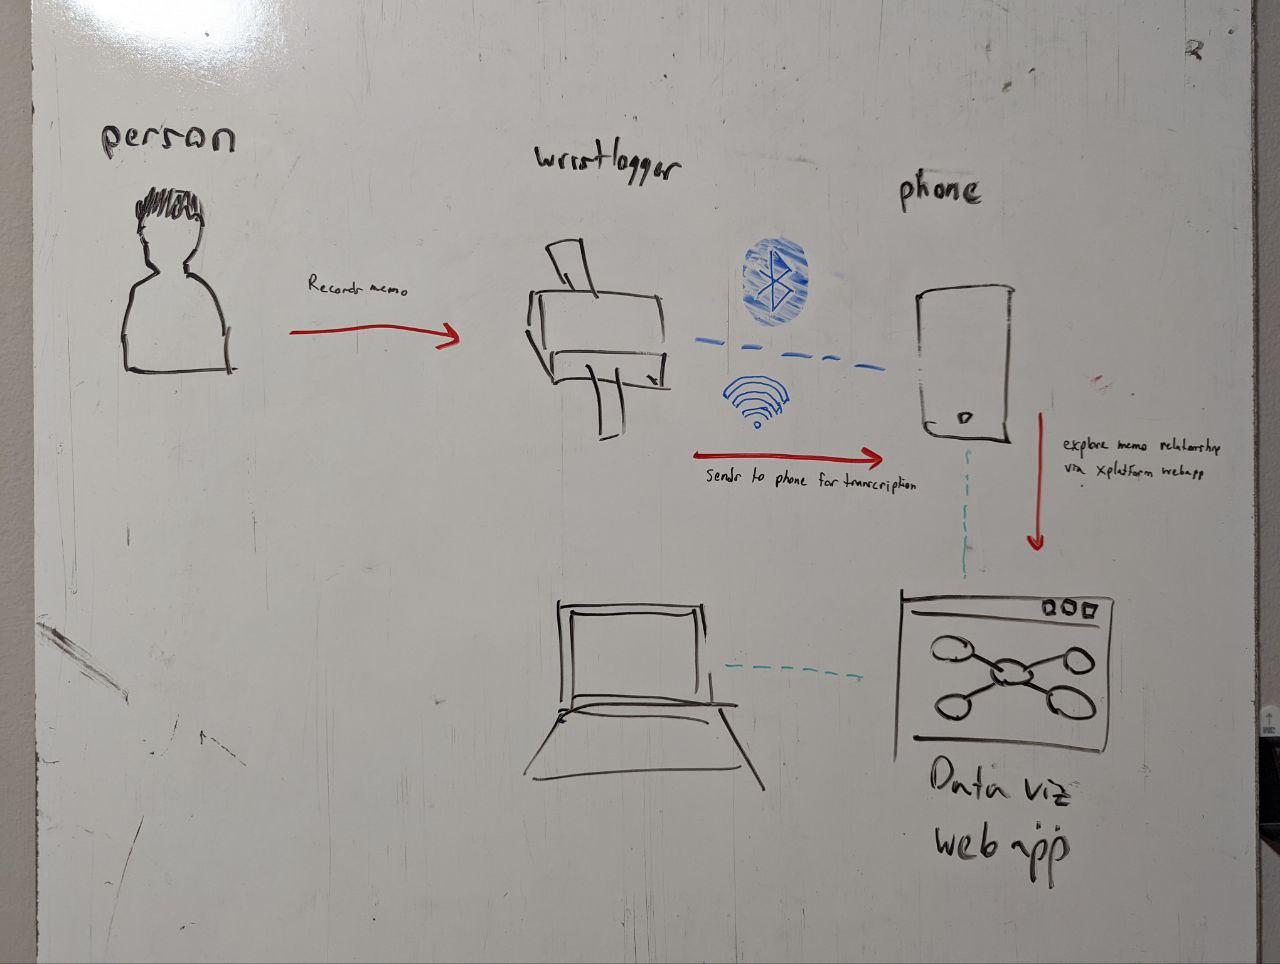 person
wristlogger
phone
Records memo
sends to phone for trancription
explore memo relationship
via xplatform webapp
Data viz
web app